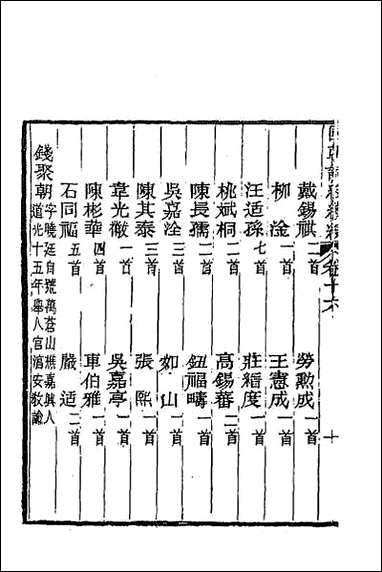 國朝詞綜續編 卷十六 十
戴錫祺二首 勞勳成一首
柳淦一首 王憲成一首
汪适孫七首 莊縉度一首
桃斌桐二首 高錫蕃二首
陳長孺二首 鈕福疇一首
吳嘉淦三首 如山一首
陳其泰三首 張熙一首
韋光黻一首 吳嘉亭一首
陳彬華四首 車伯雅一首
石同福五首 嚴适二首
錢聚朝字曉廷自號萬蒼山樵嘉興人
道光十五年舉人官淯安敎諭